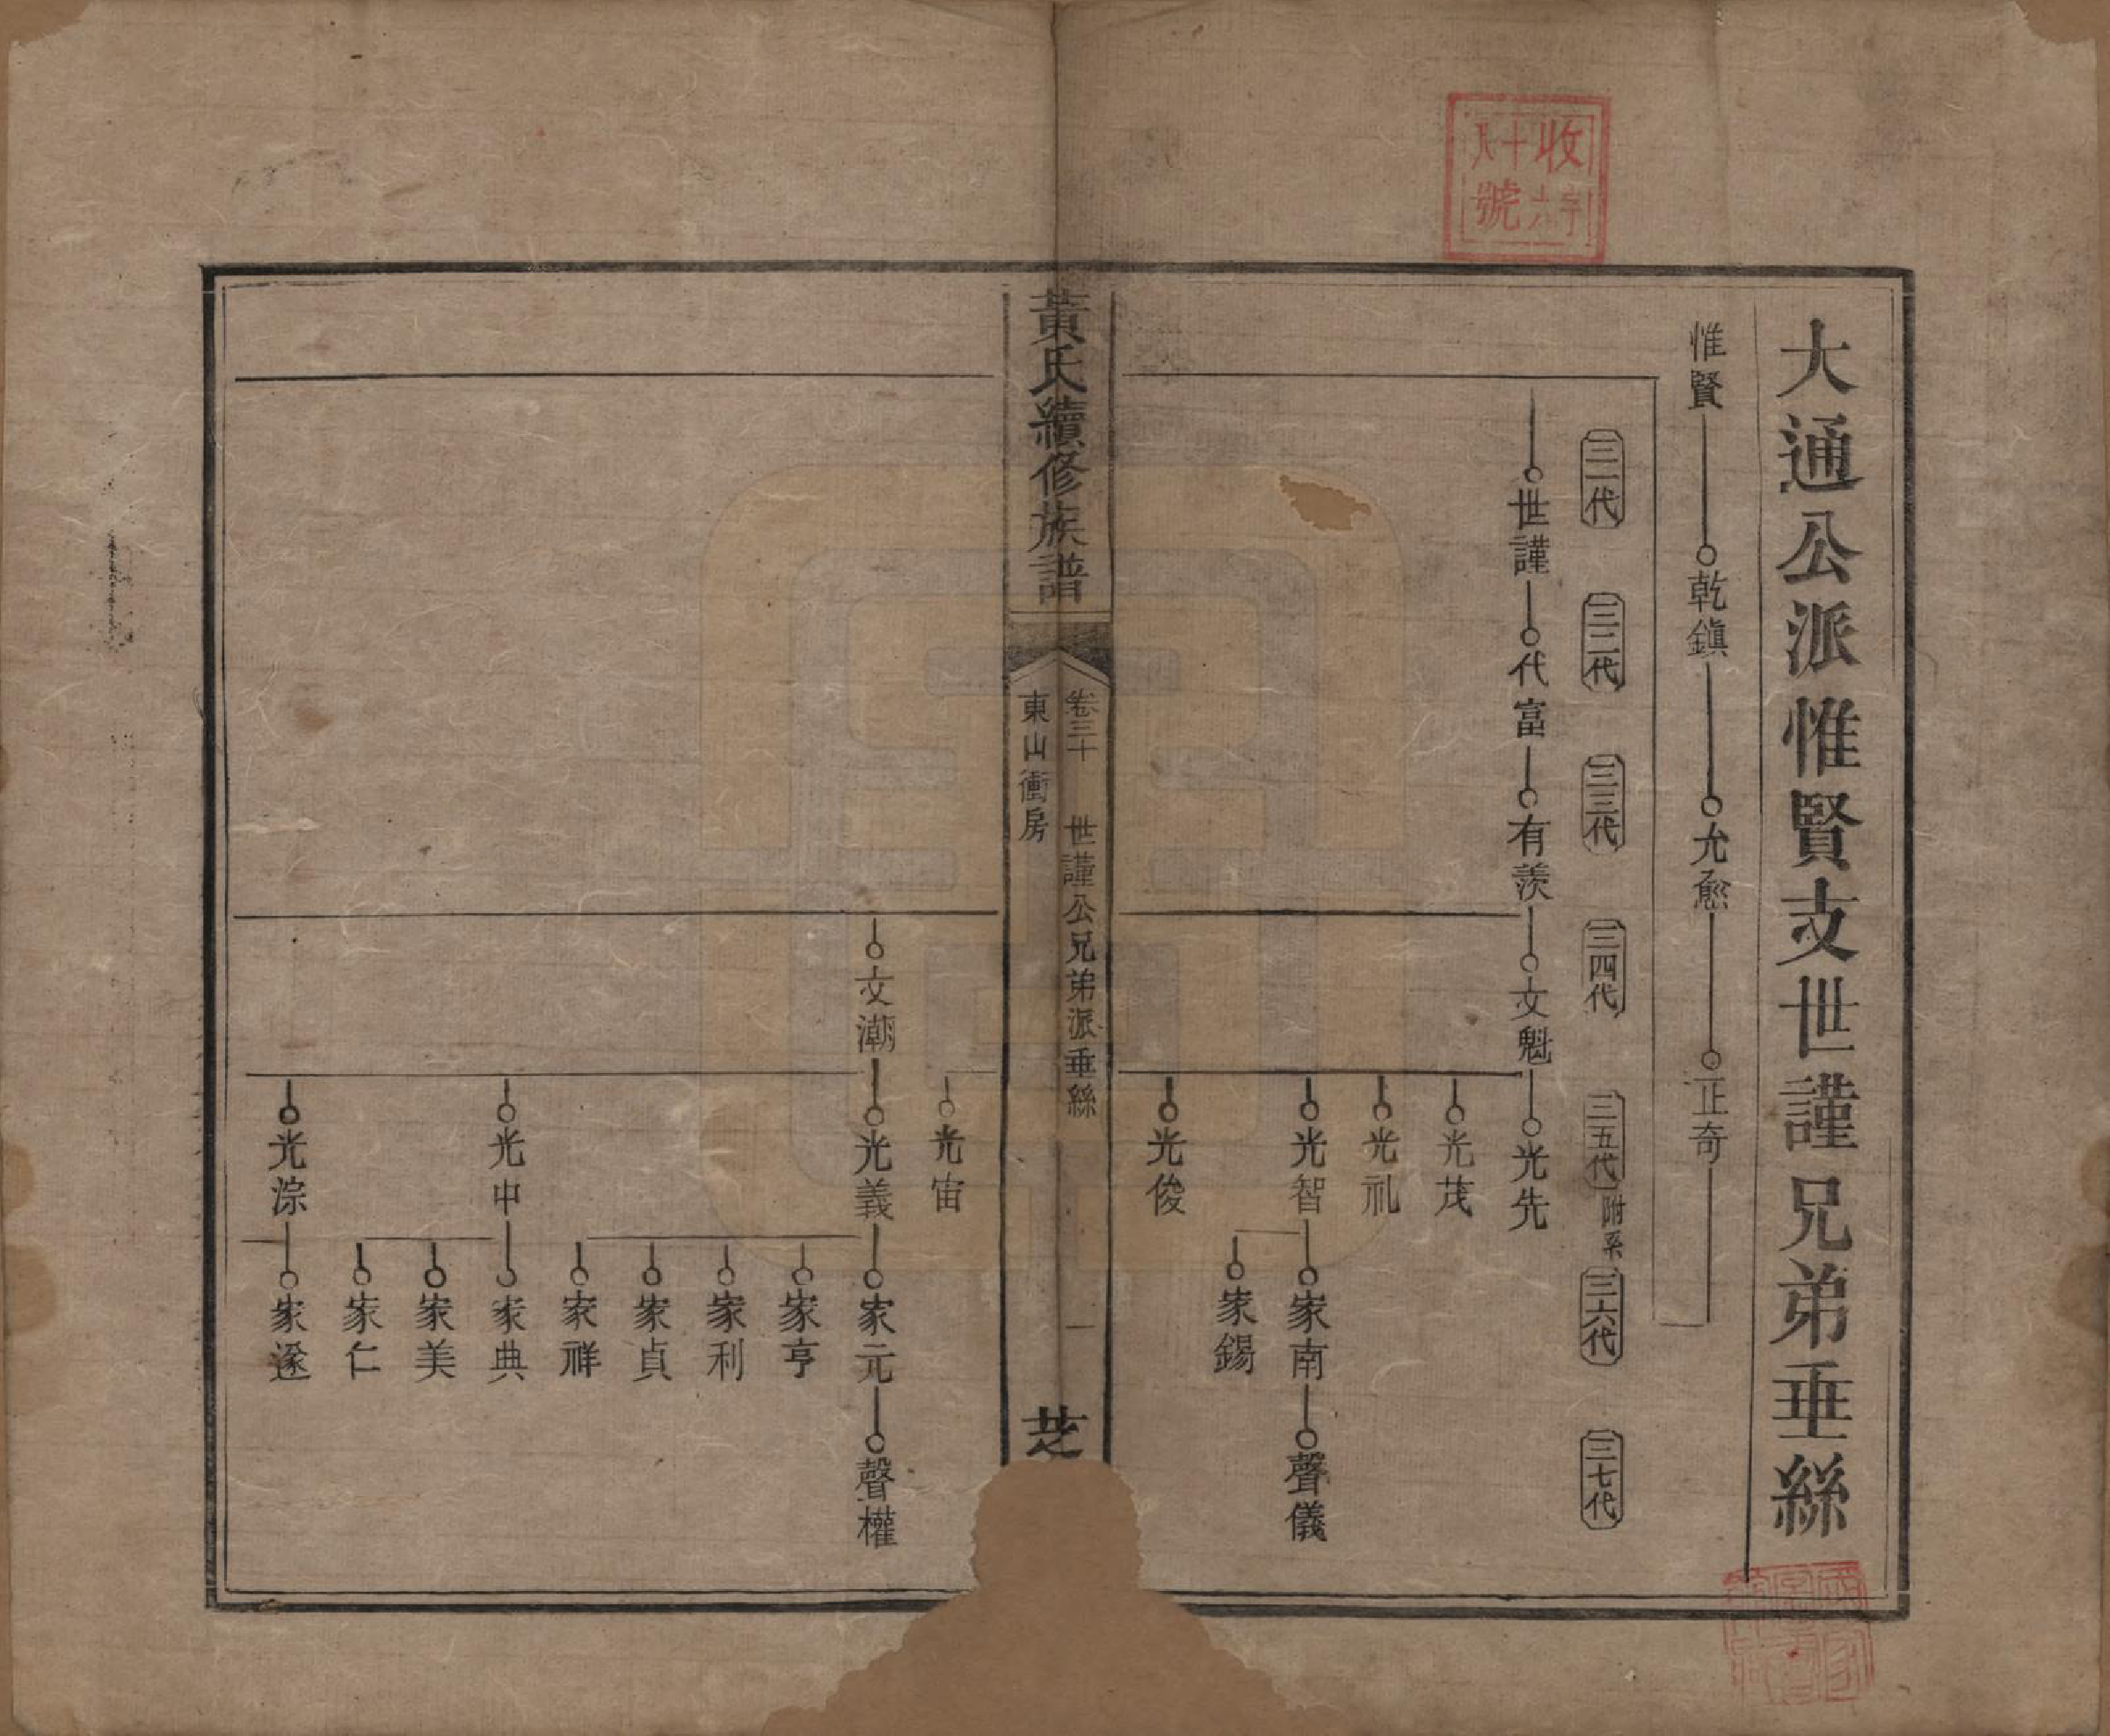 大通公派惟賢支世謹兄弟垂絲
惟賢 乾鎮 允愈 正奇
三一代 三二代 三三代 三四代 三五代 附系 三六代 三七代
世謹 代富 有羨 文魁 光先
光茂
光礼
光智 家南 聲儀
家錫
光俊
黃氏續修族譜
卷三十 世謹公兄弟派垂絲 一
東山衝房
光宙
文潮 光義 家元 聲權
家亨
家利
家貞
家祥
光中 家典
家美
家仁
光淙 家遂
收字
十六
八號